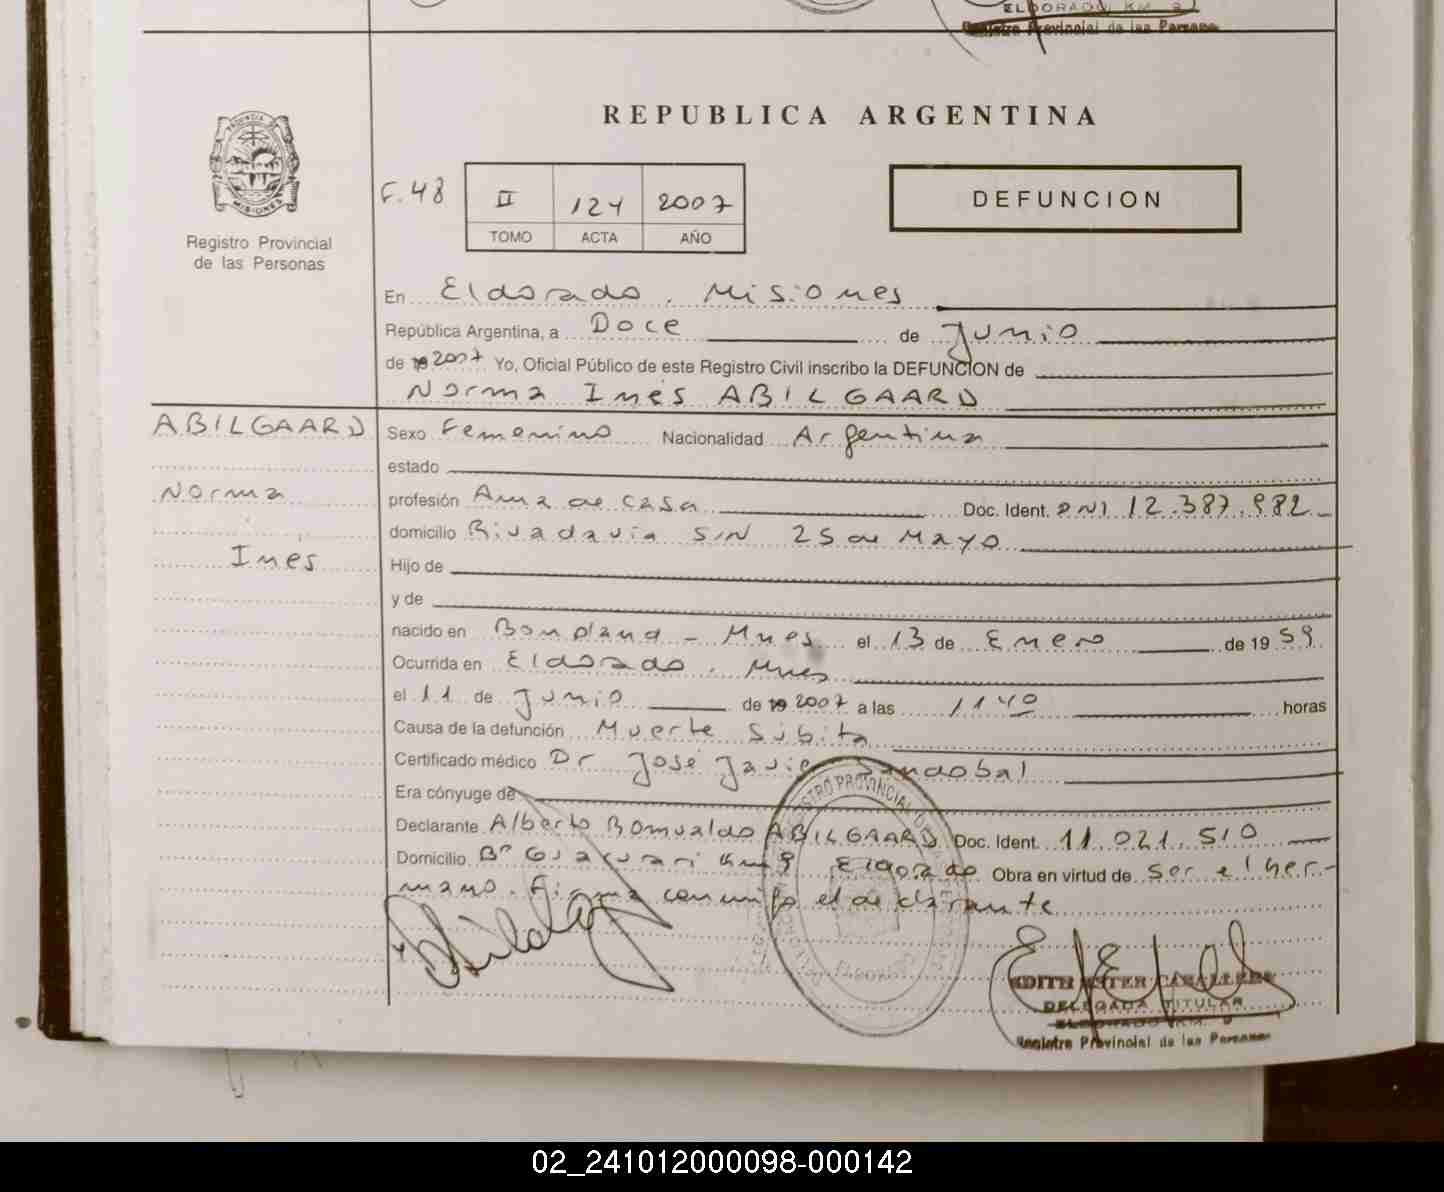 ELDORADO KM. 9
Registro Provincial de las Persona
REPUBLICA ARGENTINA
PROVINCIA DE
MISIONES
Registro Provincial
de las Personas
F. 48
II 124 2007
TOMO ACTA AÑO
DEFUNCION
En Eldorado, Misiones
República Argentina, a Doce de Junio
de 19 2007 Yo, Oficial Público de este Registro Civil inscribo la DEFUNCION de
Norma Inés ABILGAARD
ABILGAARD
Norma
Ines
Sexo Femenino Nacionalidad Argentina
estado
profesión Ama de casa Doc. Ident. DNI 12.387.982
domicilio Rivadavia S/N 25 de Mayo
Hijo de
y de
nacido en Bonpland - Mnes el 13 de Enero de 1959
Ocurrida en Eldorado, Mnes
el 11 de Junio de 19 2007 a las 11 40 horas
Causa de la defunción Muerte Súbita
Certificado médico Dr José Javier Sandobal
Era cónyuge de
Declarante Alberto Romualdo ABILGAARD Doc. Ident. 11.021.510
Domicilio Bº Guacurari Km 9 Eldorado Obra en virtud de Ser el her-
mano. Firma conmigo el declarante
REGISTRO PROVINCIAL DE LAS
ELDORADO
EDITH ESTER CABALLERO
DELEGADA TITULAR
ELDORADO KM. 9
Registro Provincial de las Personas
02_241012000098-000142